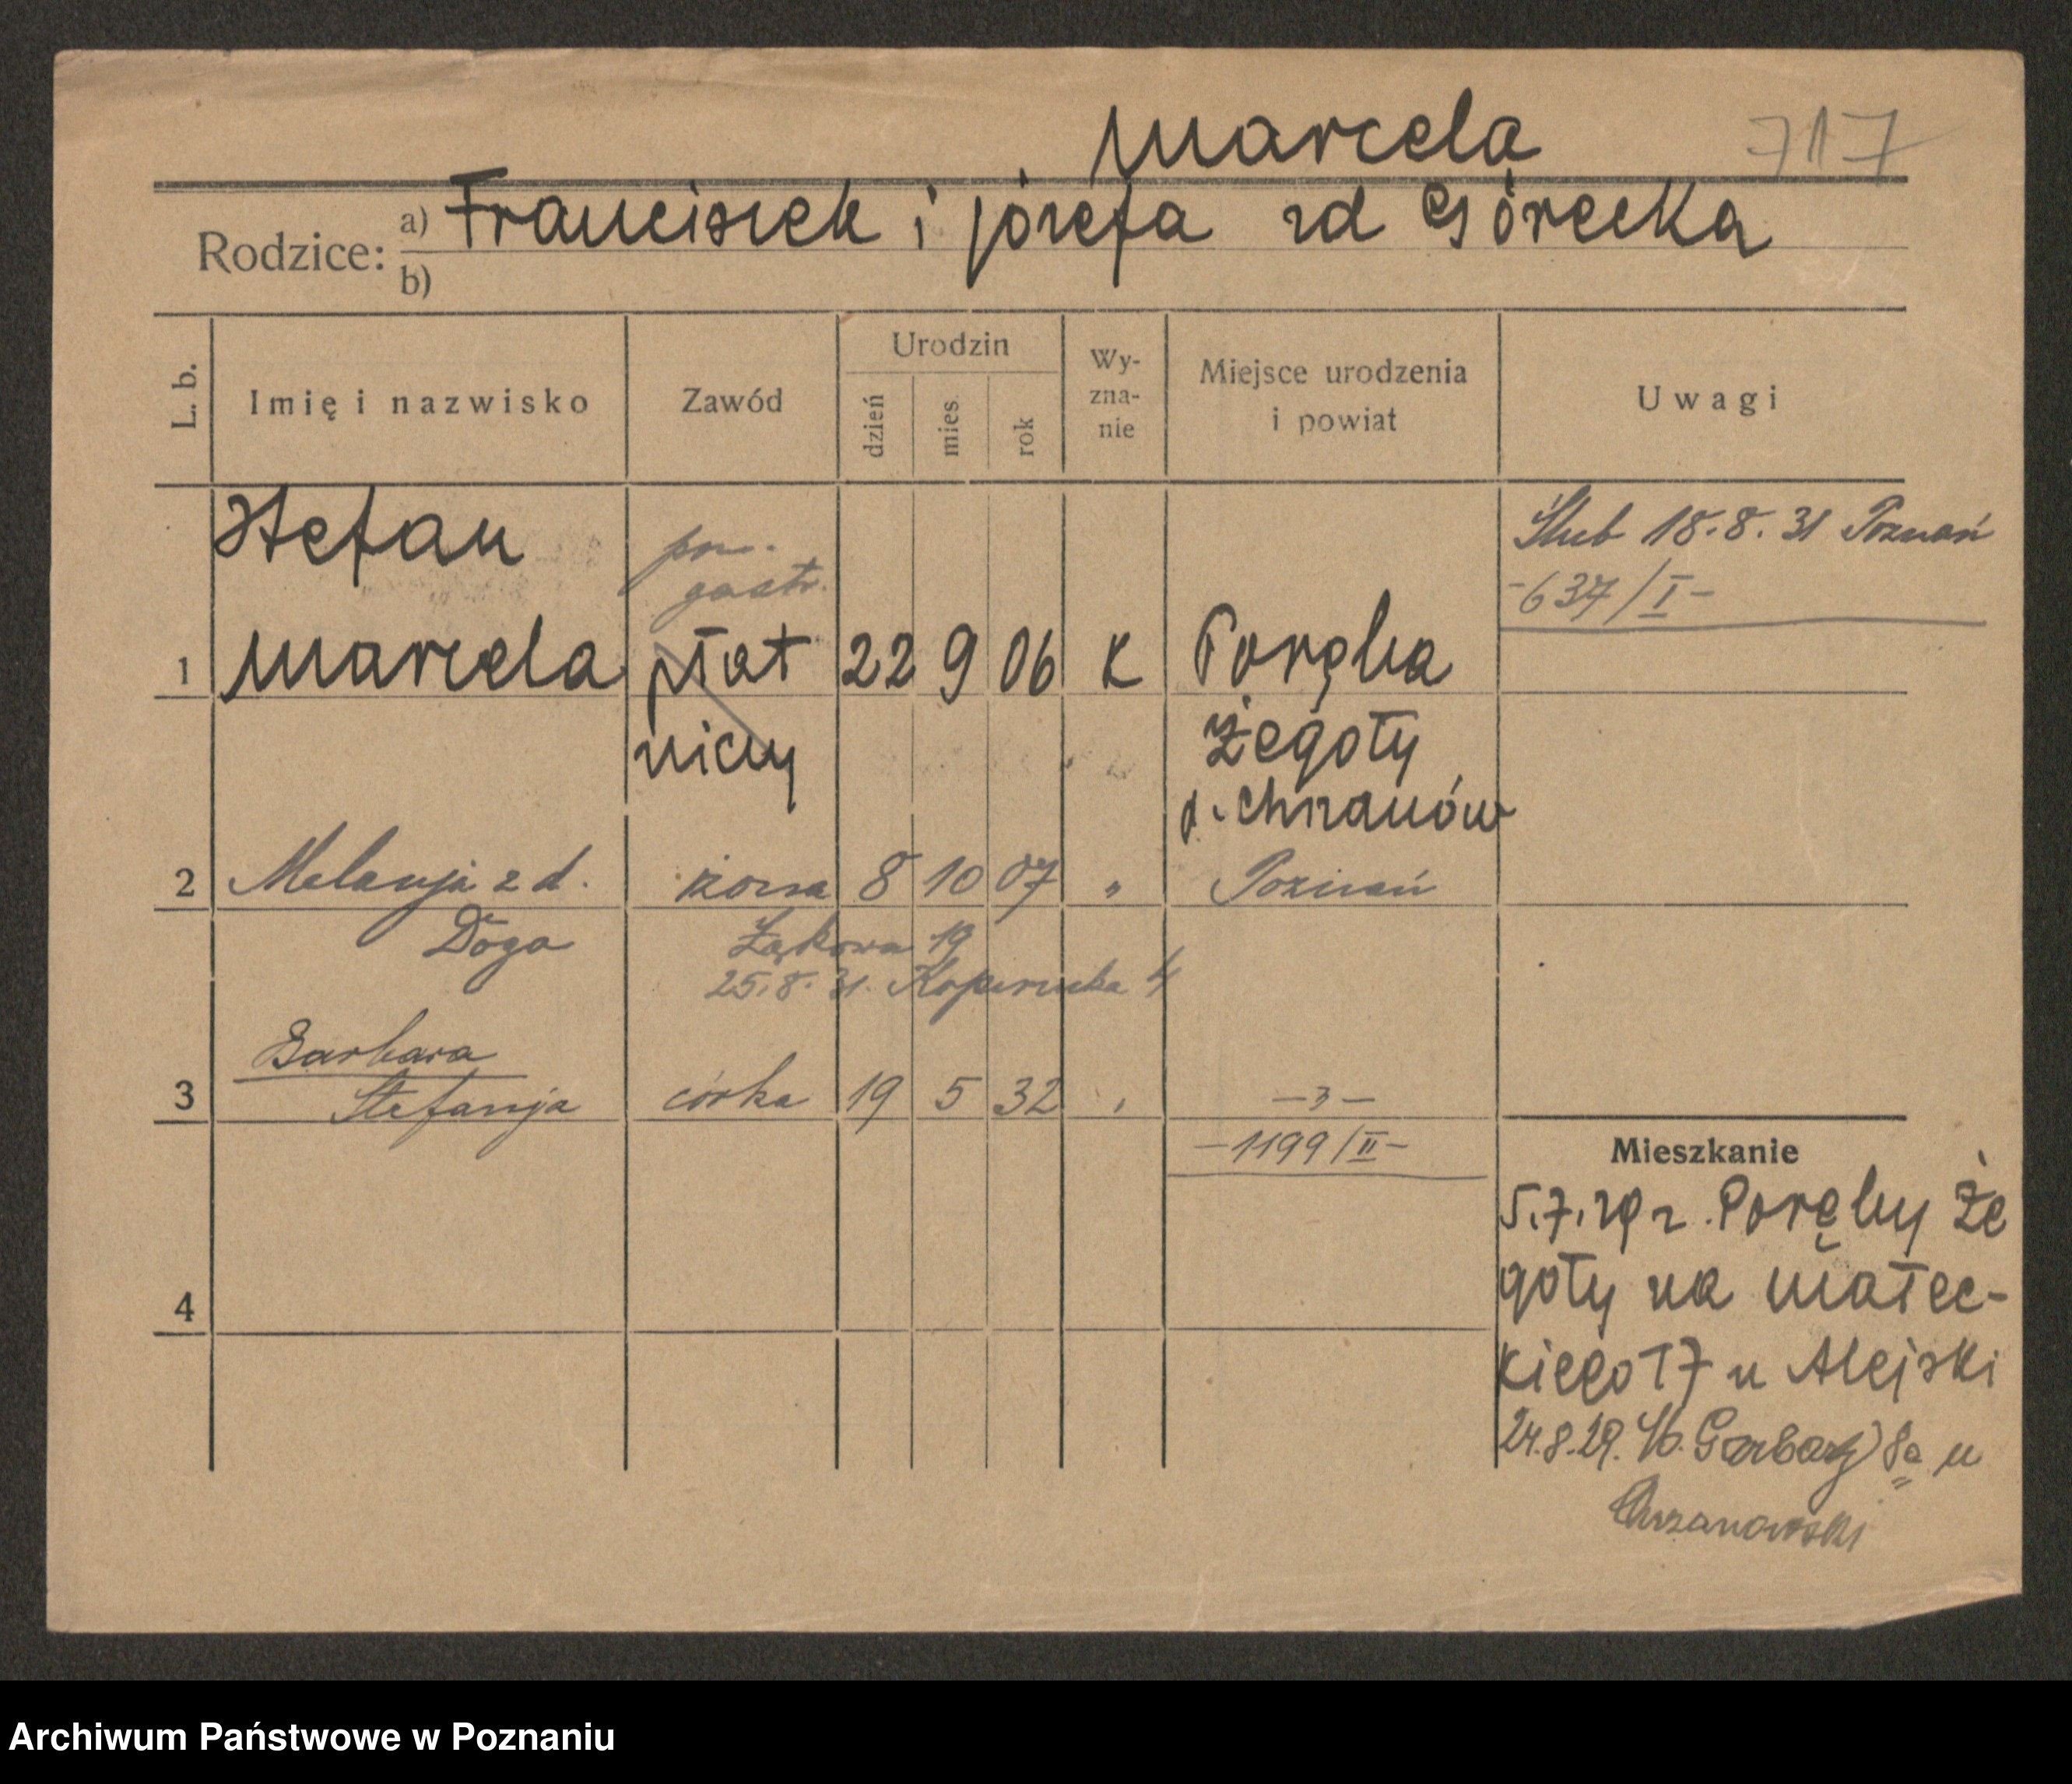 Marcela 717
Rodzice: a) Franciszek i Józefa zd Górecka
b)
L. b. Imię i nazwisko Zawód Urodzin dzień mies. rok Wy-zna-nie Miejsce urodzenia i powiat Uwagi
Stefan pom. gastr. Ślub 18.8.31 Poznań
-637/I-
1 Marcela płat 22 9 06 K Poręba
niczy Żegoty
p. Chrzanów
2 Melanja z d. żona 8 10 07 " Poznań
Doga Łąkowa 19
25.8.31. Kopernika 4
Barbara
3 Stefanja córka 19 5 32 " -3-
-1199/II-
Mieszkanie
5.7.29 z Poręby Że
goty na Małec-
4
kiego 17 u Alejski
24.8.29. Garbary 8a u
Chrzanowski
Archiwum Państwowe w Poznaniu